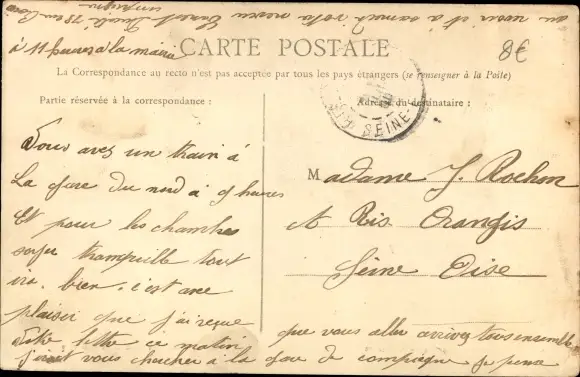 au revoir et à samedi votre neveu Ernest
à 11 heures a la mairie
CARTE POSTALE
8€
La Correspondance au recto n'est pas acceptée par tous les pays étrangers (se renseigner à la Poste)
Partie réservée à la correspondance :
Adresse du destinataire :
SEINE
Vous avez un train à
La gare du nord a 9 heures
Et pour les chambres
soyez tranquille tout
ira bien. c'est avec
plaisir que j'ai reçue
votre lettre ce matin
Madame J. Rochon
A Ris Orangis
Seine Oise
que vous aller arrivez tous ensemble
j'irait vous chercher à la gare de compiègne je pense